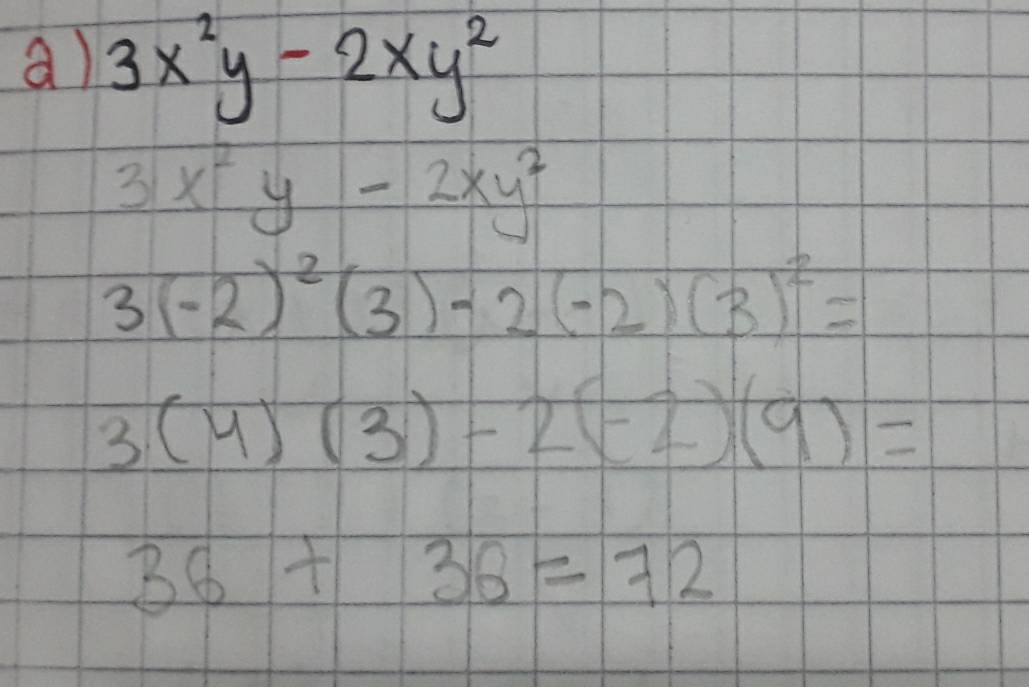 a) 3x²y - 2xy²
3x²y - 2xy²
3(-2)²(3) - 2(-2)(3)² =
3(4)(3) - 2(-2)(9) =
36 + 36 = 72